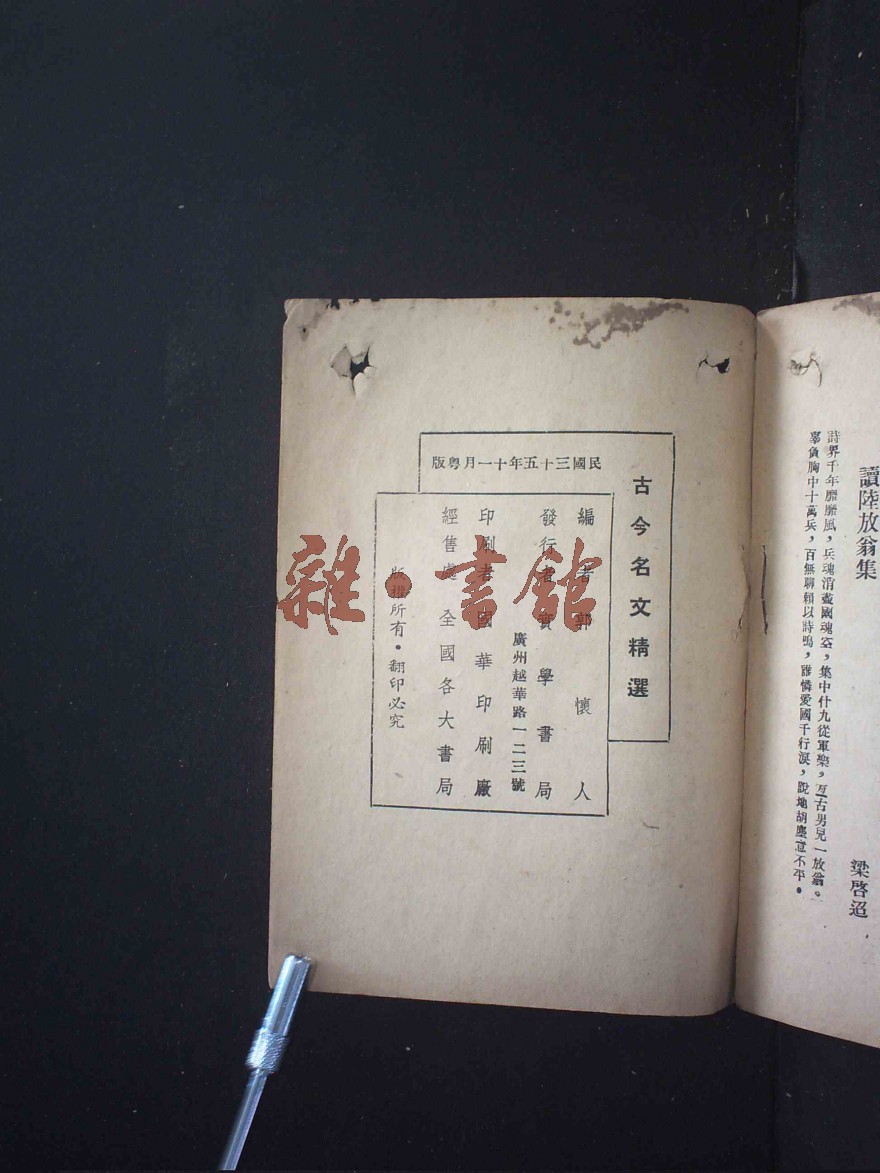 讀陸放翁集
梁啓超
詩界千年靡靡風，兵魂消盡國魂空，集中什九從軍樂，亙古男兒一放翁。
辜負胸中十萬兵，百無聊賴以詩鳴，誰憐愛國千行淚，說地胡塵意不平。
古今名文精選
民國三十五年十一月粵版
編者郭懷人
發行者實學書局
廣州越華路一二三號
印刷者國華印刷廠
經售處全國各大書局
版權所有・翻印必究
雜・書館